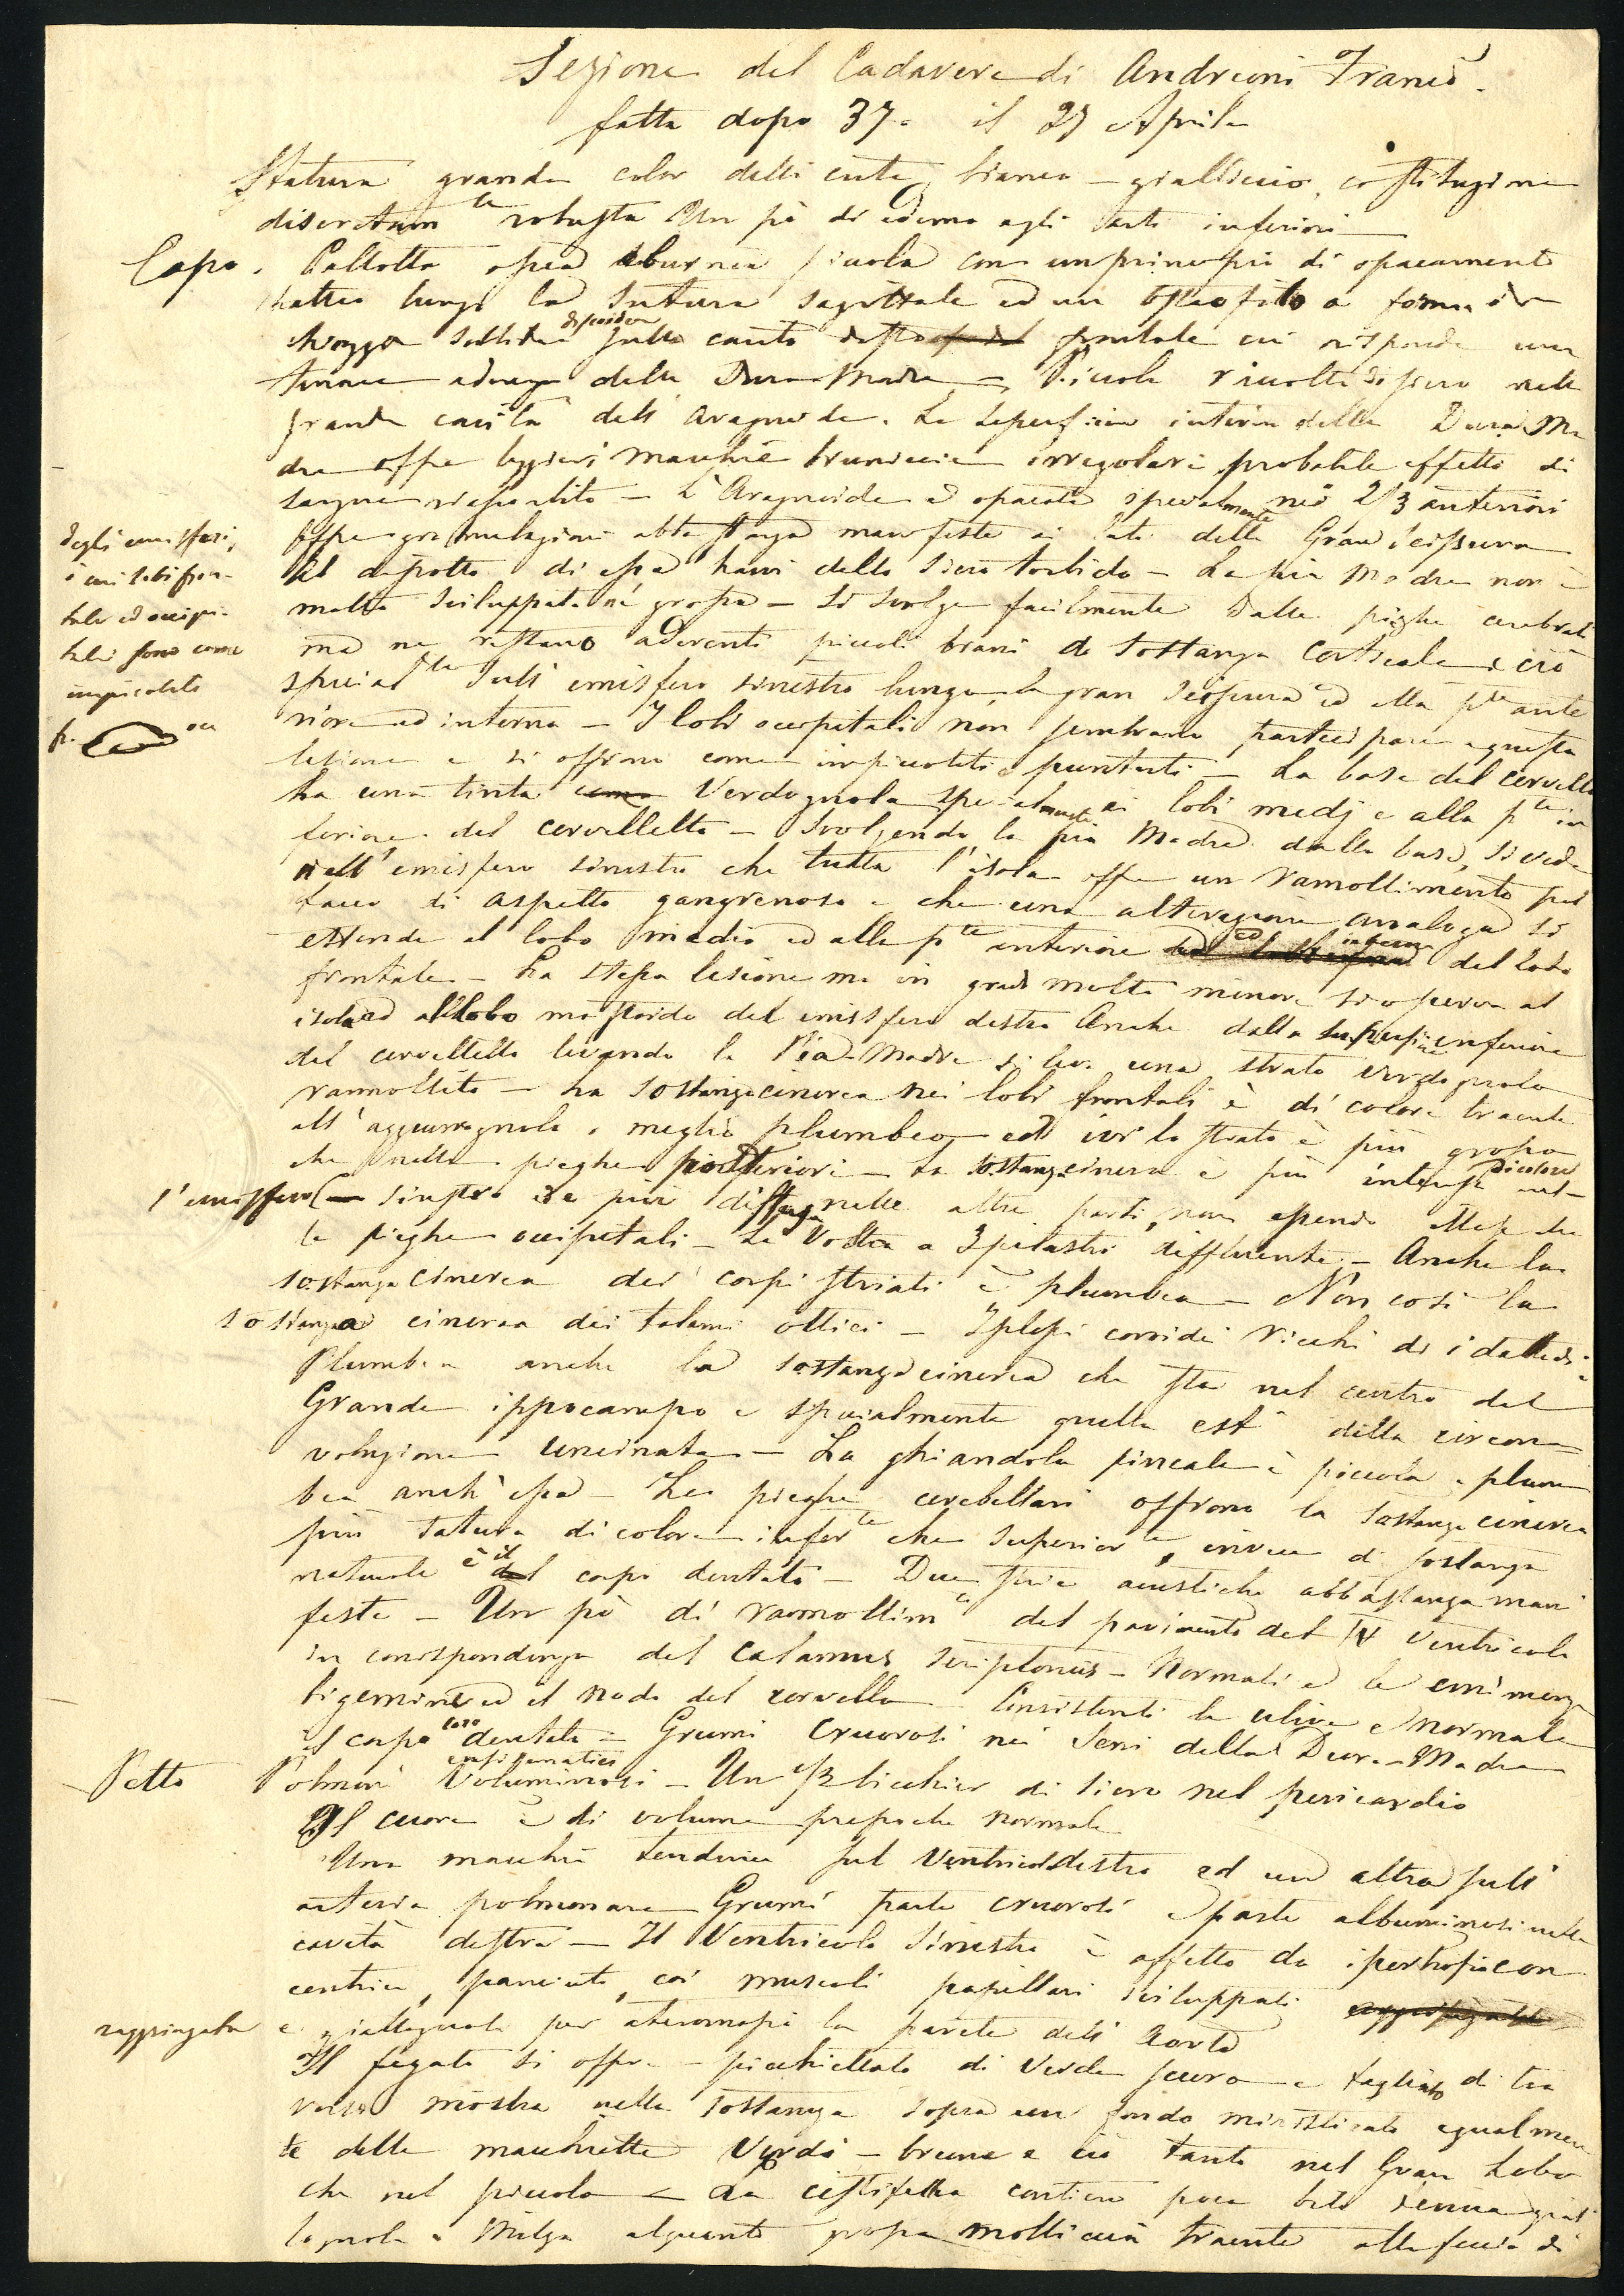 Sezione del Cadavere di Andreoni Franco
fatta dopo 37. il 27 Aprile
Statura grande color della cute bianco-gialliccio, costituzione
discretamte robusta Un pò di edema agli arti inferiori
Capo. Callotta ossea eburnea piccola con un principio di opacamento
latteo lungo la Sutura Sagittale ed un osteofito a forma di
chiozza sottile sulla destro frontale cui risponde una
tenace aderenza della Dura Madre - Piccola raccolta di siero nella
grande cavità dell'aragnoide. La superficie interna della Dura Ma
dre offre leggieri macchie bruniccie irregolari probabile effetto di
sangue - L'Aragnoide è opacata specialmente nei 2/3 anteriori
Offre granulazioni abbastanza manifeste ai lati della Gran Scissura
Al disotto di essa havvi dello siero torbido - La pia Madre non è
molto sviluppata nè grossa - Si svolge facilmente dalle pieghe cerebrali
ma ne restano aderenti piccoli brani di sostanza corticale e ciò
specialmte sull'emisfero sinistro lungo la gran scissura ed alla pte ante
riore ed interna - I lobi occipitali non sembrano partecipare a questa
lesione e si offrono come impiccoliti e puntuti - La base del cervello
ha una tinta come Verdognola specialmente ai lobi medj e alla pte in
feriore del cervelletto - Svolgendo la pia Madre dalla base, si vede
nell'emisfero sinistro che tutta l'isola offre un rammollimento pul
taceo di aspetto gangrenoso e che una alterazione analoga si
estende al lobo medio ed alla pte anteriore ed interna del lobo
frontale - La stessa lesione ma in grado molto minore si osserva al
isola ed al lobo mastoide del emisfero destro Anche dalla superficie inferiore
del cervelletto levando la Pia-Madre si leva uno strato verdognolo
rammollito - La sostanza cinerea nei lobi frontali è di colore traente
all' o meglio plumbeo ed ivi lo strato è più grosso
che nelle pieghe posteriori - La sostanza cinerea è più intensa di colore nel-
l'emisfero sinistro ed è più diffusa nelle altre parti, non essendo illese che
le pieghe occipitali - La Volta a 3 pilastri diffluente - Anche la
sostanza cinerea dei corpi striati è plumbea - Non così la
sostanza cinerea dei talami ottici - I plessi coroidei ricchi di idatidi
Plumbea anche la sostanza cinerea che sta nel centro del
Grande ippocampo e specialmente quella della circon=
voluzione uncinata - La ghiandola pineale è piccola e plum
bea anch'essa - Le pieghe cerebellari offrono la sostanza cinerea
più satura di colore inferte che superiorte, invece di sostanza
naturale è il corpo dentato - Due strie acustiche abbastanza mani
feste - Un pò di rammollimto del pavimento del IV ventricolo
in corrispondenza del Calamus Scriptorius - Normali le eminenze
bigemine ed il nodo del cervello - Consistenti le ulive e normale
il corpo loro dentato - Grumi cruorosi nei Seni della Dura-Madre
Petto Polmoni enfisematici Voluminosi - Un 1/2 bicchier di siero nel pericardio
Il cuore è di volume pressoche normale
Una macchia tendinea sul Ventricolo destro ed un altra sull'
arteria polmonare Grumi parte cruorosi e parte albuminosi nelle
cavità destre - Il Ventricolo Sinistro è affetto da ipertrofia con
centrica, panciuto, coi muscoli papillari sviluppati
raggrinzata e giallognola per ateromasia la parete dell'Aorta
Il fegato si offre picchiettato di verde scuro e tagliato di tra
verso mostra nella sostanza sopra un fondo egualmen
te delle macchiette Verdi-brune e ciò tanto nel Gran Lobo
che nel piccolo - La cistifellea contiene poca bile giall
lognola - Milza alquanto grossa molliccia traente alla feccia di
degli emisferi,
i cui lobi fron-
tale ed occipi-
tale sono come
impiccoliti
fr. occ